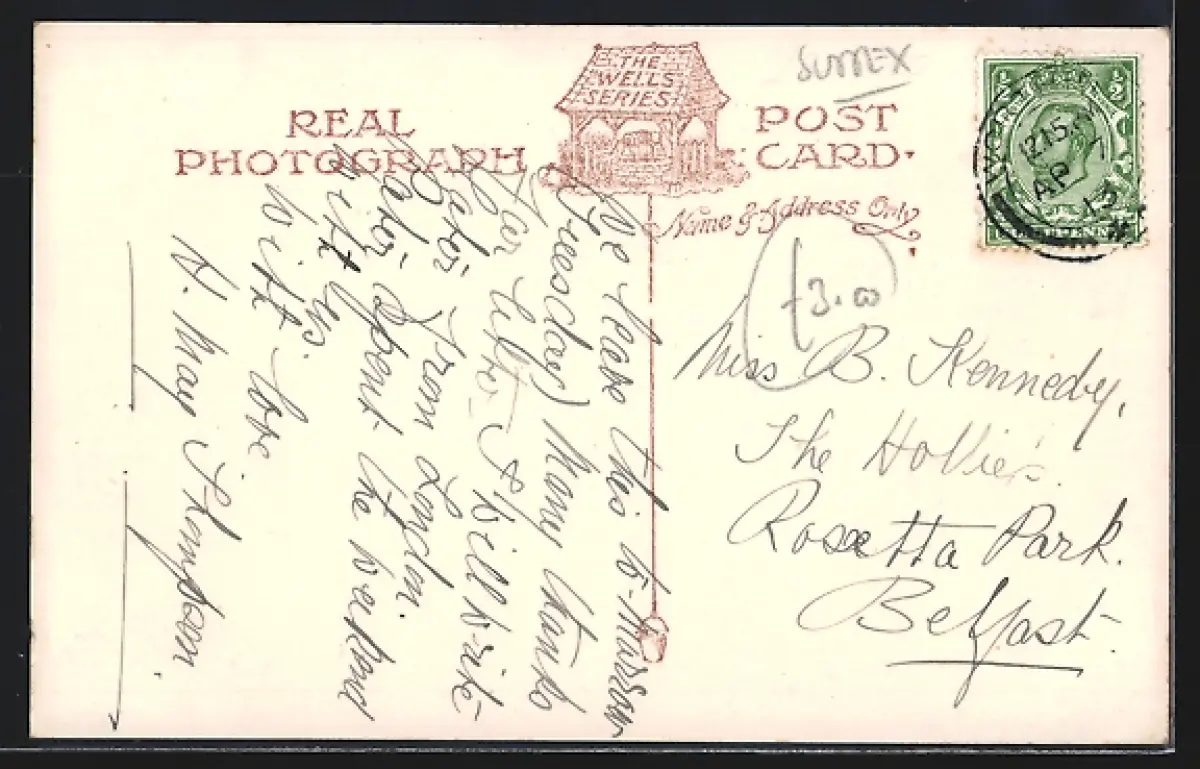 THE
WELLS
SERIES
SUSSEX
REAL
PHOTOGRAPH
POST
CARD.
Name & Address Only
½
½
12.15
AP
12
£3.00
We leave this to-morrow
(Tuesday) Many thanks
for letter. I will write
later from London.
Robin spent the weekend
with us.
With love
H. May Thompson.
Miss B. Kennedy,
The Hollies.
Rosetta Park.
Belfast.